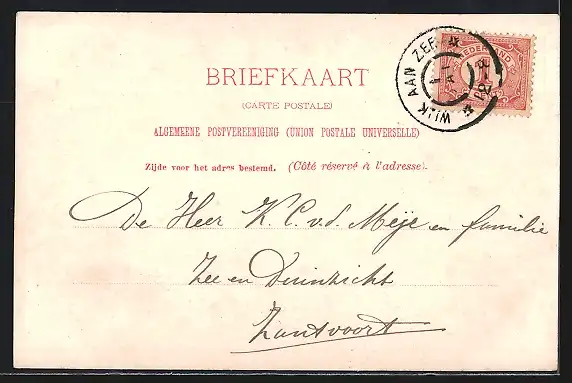 BRIEFKAART
(CARTE POSTALE)
ALGEMEENE POSTVEREENIGING (UNION POSTALE UNIVERSELLE)
Zijde voor het adres bestemd. (Côté réservé à l'adresse).
WIJK AAN ZEE
NEDERLAND
1
De Heer K. C. v. d. Meije en familie
Zee en Duinzicht
Zantvoort